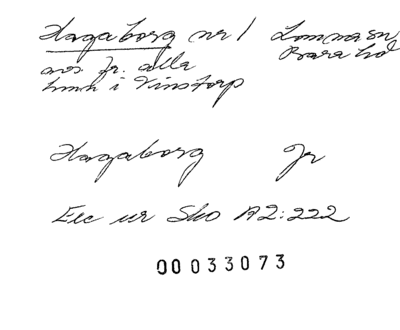 Hagaborg nr 1 Lommasn
avs. fr. alla Bara hd
hmn i Vinstorp
Hagaborg Jr
Ec ur Sko A2:222
00033073